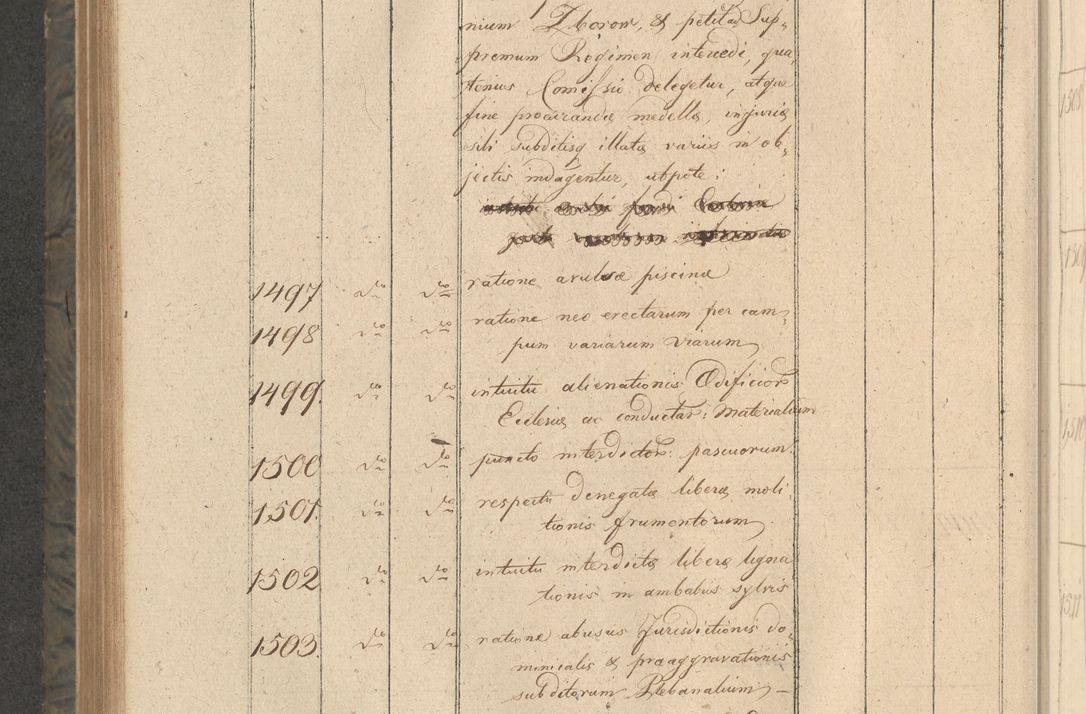 nium Zborow, & petit ad Sup-
premum Regimen intercedi, qua
tenius Comissio delegetur, atque
fine procurandæ medellæ, injuriæ
sibi subditisq illatæ variis in ob-
jectis indagentur, utpote:
1497 do do ratione avulsæ piscinæ
1498 do do ratione neo erectarum per cam-
pum variarum viarum
1499. do do intuitu alienationis Ædificior
Ecclesiæ ac conductar: Materialium
1500 do do puncto interdictor: pascuorum
1501. do do respectu denegatæ liberæ moli
tionis frumentorum.
1502 do do intuitu interdictæ liberæ ligna
tionis in ambabus sylvis
1503. do do ratione abusus Jurisdictionis do-
minicalis & praaggravationis
subditorum Plebanalium –